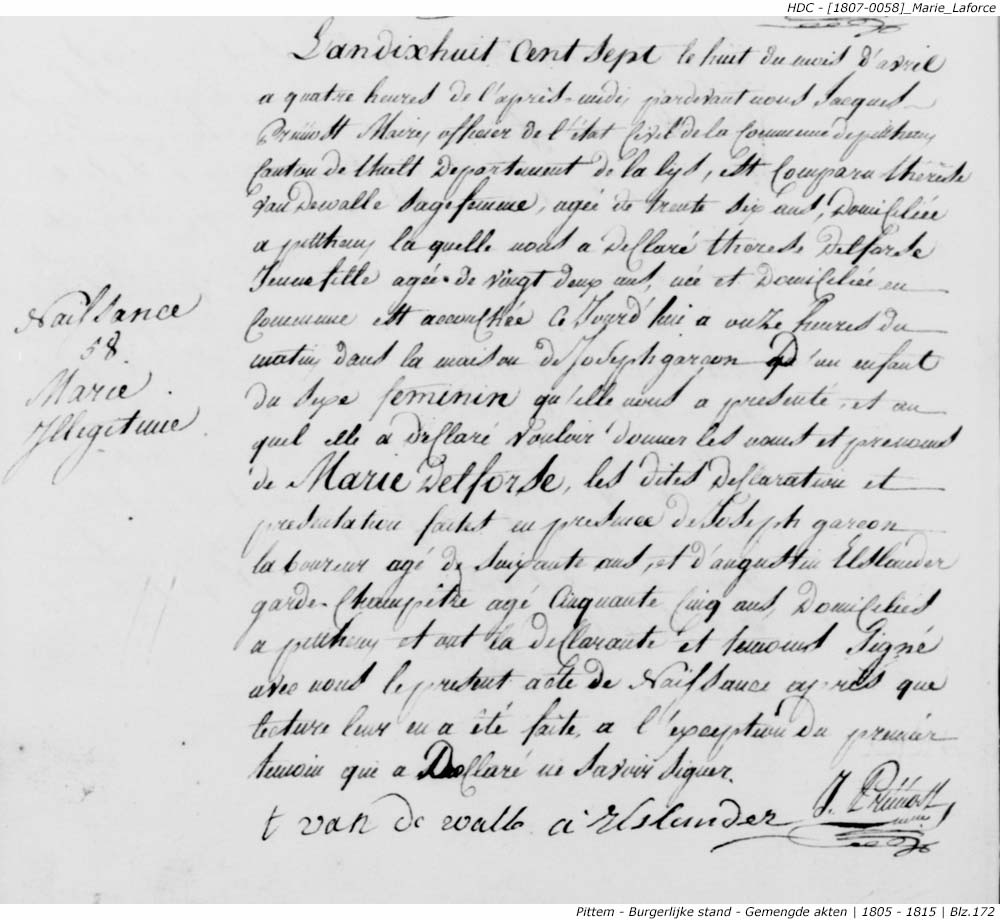 HDC - [1807-0058]_Marie_Laforce
L'an dix huit Cent sept le huit du mois d'avril
a quatre heures de l'apres-midi pardevant nous Jacques
Maire, officier de l'état Civil de la Commune de pitthem,
Canton de thielt Departement de la lys, est Comparu thérèse
Van Dewalle sagefemme, agée de trente six ans, Domiciliée
a pitthem, la quelle nous a déClaré thérèse Delforse
Jeune fille agée de vingt deux ans, née et Domiciliée en
Commune est accouchée Ce Jourd'hui a onze heures du
matin, dans la maison de Joseph garçon d'un enfant
du sexe feminin qu'elle nous a presenté, et au
quel elle a déClaré vouloir donner les noms et prenoms
de Marie Delforse, les dites déClaration et
presentation faites en presence de Joseph garçon
laboureur agé de soixante ans, et d'augustin Elslander
garde-Champètre agé Cinquante Cinq ans, Domiciliés
a pitthem, et ont la déClarante et temoins Signé
avec nous le present acte de Naissance après que
lecture leur en a été faite, a l'exception du premier
temoin qui a DeClaré ne savoir signer.
Naissance
58.
Marie
Illegitime
t van de walle a Elslander
Pittem - Burgerlijke stand - Gemengde akten | 1805 - 1815 | Blz.172